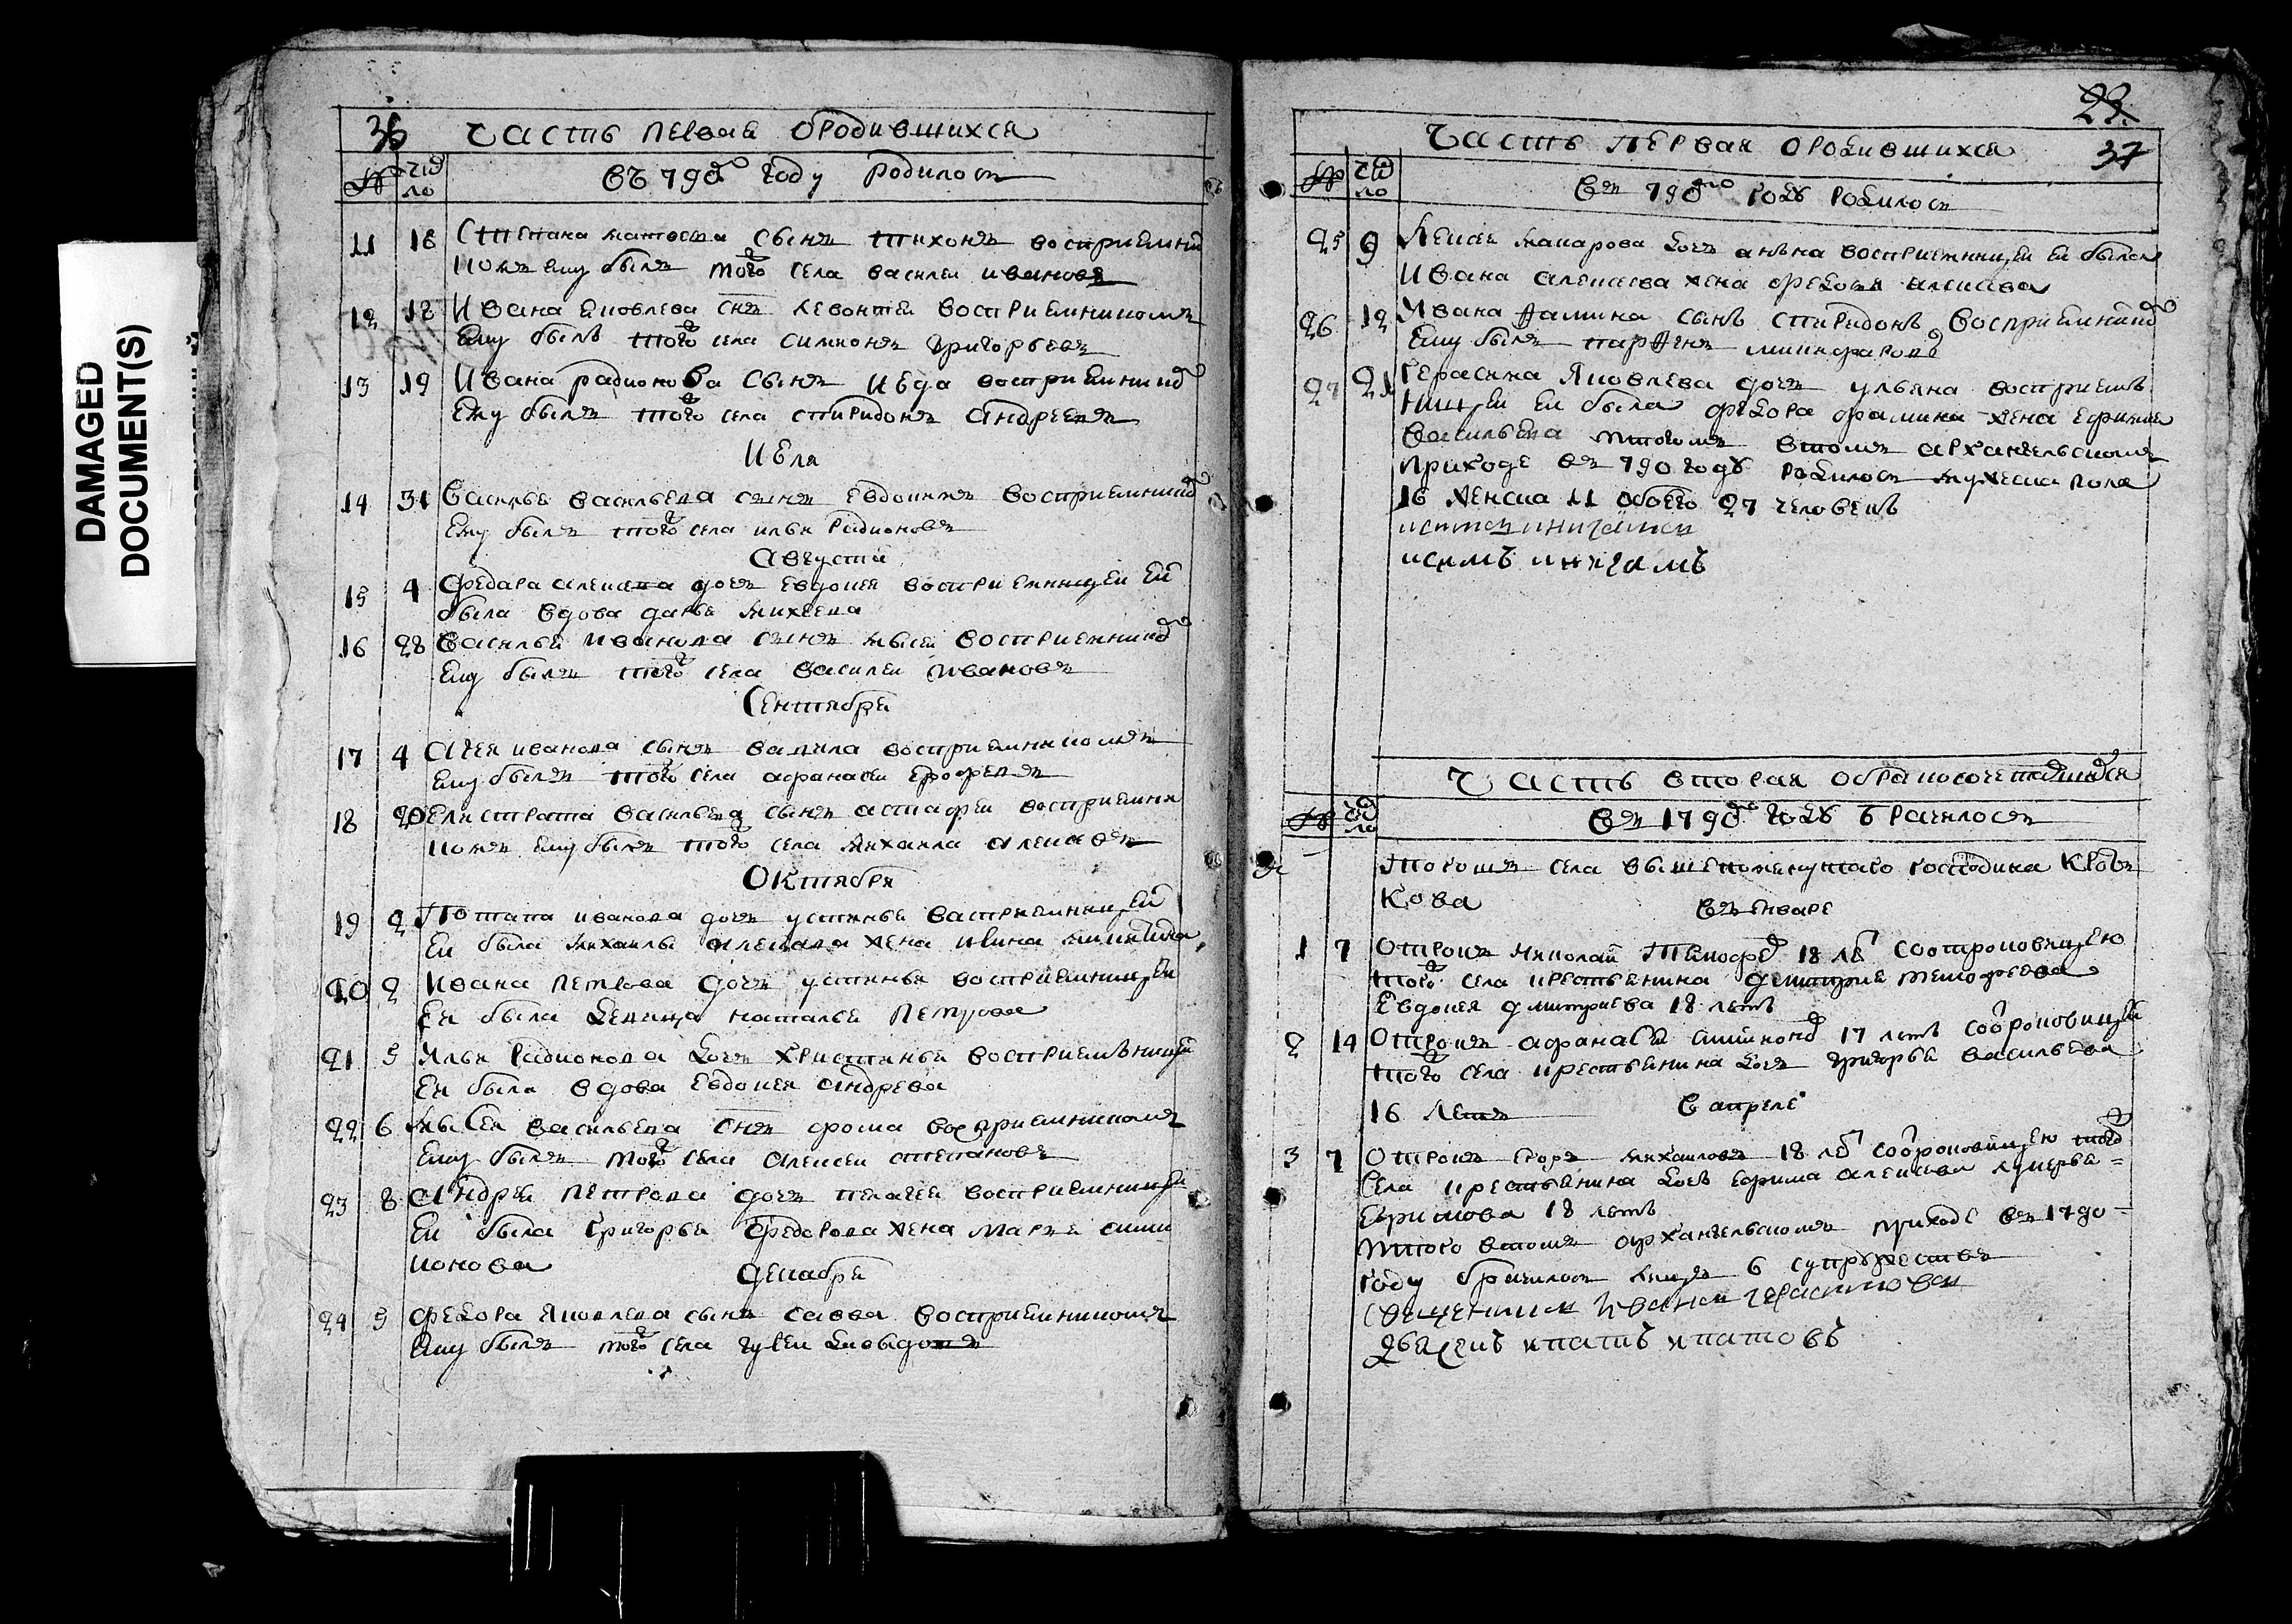 DAMAGED
DOCUMENT(S)
36 Часть первая ородившихся
№ число въ 790го году родилось
11 18 Степана сынъ тихонъ восприемни
комъ ему былъ того села василеи ивановъ
12 18 Ивана яковлева снъ левонтеи восприемникомъ
ему былъ того села симионъ григорьевъ
13 19 Ивана радионова сынъ иевда восприемнико
ему былъ того села спиридонъ андреевъ
Июля
14 31 Василья васильева сынъ евдокимъ восприемнико
ему былъ того села илья радионовъ
Августа
15 4 Федора алексева дочь евдокея восприемницеи еи
была вдова дарья михеева
16 28 Василья иванова сынъ мысеи восприемнико
ему былъ того села василеи ивановъ
Сентября
17 4 иванова сынъ вавила восприемникомъ
ему былъ того села афанасеи ерофеевъ
18 20 Елистрата васильева сынъ астафеи восприемни
комъ ему былъ того села михаила алексавъ
Октября
19 2 Потапа иванова дочь устинья васприемницеи
еи была михаилы алексава жена
20 2 Ивана петрова дочь устинья восприемницеи
еи была девица наталья петрова
21 5 Ильи радионова дочь христинья восприемъницеи
еи была вдова евдокея андрева
22 6 Мысея васильева снъ фома восприемникомъ
ему былъ того села алексеи степановъ
23 8 Андрея петрова дочь пелагея восприемницеи
еи была григорья федорова жена марья сими
онова
Декабря
24 5 Федора яковлева сынъ савва восприемникомъ
ему былъ того села
23.
Часть первая ородившихся 37
№ число въ 790го годъ родилось
25 9 макарова дочь анъна восприемницеи еи была
Ивана алексеева жена федосья алексева
26 12 Ивана сынъ спиридонъ восприемнико
ему былъ
27 21 Герасима яковлева дочь ульяна восприемъ
ницеи еи была федора фамина жена ефимия
васильева итого въ томъ архангельскомъ
приходе въ 790 годъ родилось мужеска пола
16 женска 11 обоего 27 человекъ
симъ книгамъ
Часть вторая обракосочетавшихся
№ число въ 1790го годъ брачилось
Тогожъ села вышепомянутаго господина
кова въ енваре
1 7 Отрокъ николаи тимофе 18 ле соотроковицею
того села крестьянина дмитрие тимофеева
Евдокея дмитриева 18 летъ
2 14 Отрокъ афанасеи 17 летъ соотроковицеи
того села крестьянина дочь григорья васильева
16 летъ в апреле
3 7 Отрокъ егоръ михаиловъ 18 ле соотроковицею того
села крестьянина дочь ефима алексева лукерья
Ефимова 18 летъ
итого втомъ архангельскомъ приходе въ 1790
году брачилось 6 супружествъ
священникъ Иванъ